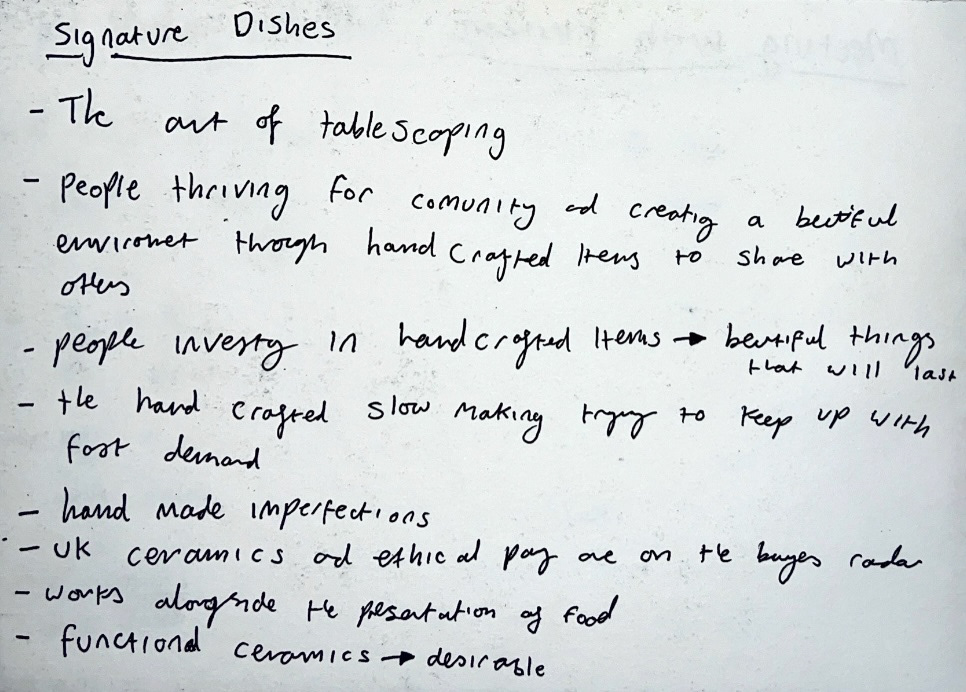 Signature Dishes
- The art of tablescaping
- People thriving for comunity ad creatig a beutiful
enviromet through handcrafted Items to share with
others
- people investg in handcrafted Items → beutiful things
that will last
- the hand crafted slow making tryng to keep up with
fast demand
- hand made imperfections
- UK ceramics ad ethical pay are on the buyes radar
- works alongside the presentation of food
- functional ceramics → desirable